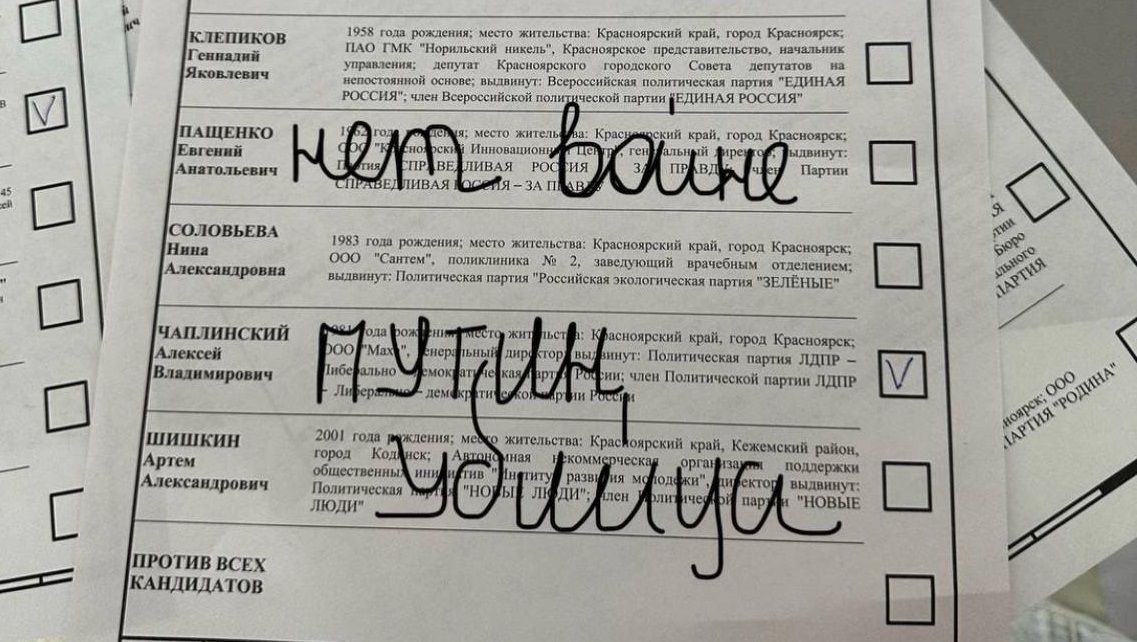 КЛЕПИКОВ
Геннадий
Яковлевич
1958 года рождения; место жительства: Красноярский край, город Красноярск;
ПАО ГМК "Норильский никель", Красноярское представительство, начальник
управления; депутат Красноярского городского Совета депутатов на
непостоянной основе; выдвинут: Всероссийская политическая партия "ЕДИНАЯ
РОССИЯ"; член Всероссийской политической партии "ЕДИНАЯ РОССИЯ"
ПАЩЕНКО
Евгений
Анатольевич
1962 года рождения; место жительства: Красноярский край, город Красноярск;
ООО "Красноярский Инновационный Центр", генеральный директор; выдвинут:
Партия СПРАВЕДЛИВАЯ РОССИЯ ЗА ПРАВДУ; член Партии
СПРАВЕДЛИВАЯ РОССИЯ – ЗА ПРАВДУ
нет войне
СОЛОВЬЕВА
Нина
Александровна
1983 года рождения; место жительства: Красноярский край, город Красноярск;
ООО "Сантем", поликлиника № 2, заведующий врачебным отделением;
выдвинут: Политическая партия "Российская экологическая партия "ЗЕЛЁНЫЕ"
ЧАПЛИНСКИЙ
Алексей
Владимирович
1981 года рождения; место жительства: Красноярский край, город Красноярск;
ООО "Мах", генеральный директор; выдвинут: Политическая партия ЛДПР –
Либерально-демократическая партия России; член Политической партии ЛДПР
– Либерально – демократической партии России
путин,
убийца
ШИШКИН
Артем
Александрович
2001 года рождения; место жительства: Красноярский край, Кежемский район,
город Кодинск; Автономная некоммерческая организация поддержки
общественных инициатив "Институт развития молодежи", директор; выдвинут:
Политическая партия "НОВЫЕ ЛЮДИ"; член Политической партии "НОВЫЕ
ЛЮДИ"
ПРОТИВ ВСЕХ
КАНДИДАТОВ
Бюро
ПАРТИЯ
ООО
ПАРТИЯ "РОДИНА"